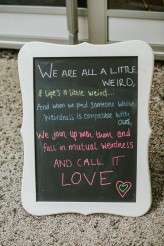 WE ARE ALL A LITTLE
WEIRD,
& LIFE'S A LITTLE WEIRD...
AND WHEN WE FIND SOMEONE WHOSE
WEIRDNESS IS COMPATIBLE WITH
OURS,
WE JOIN UP WITH THEM AND
FALL IN MUTUAL WEIRDNESS
AND CALL IT
LOVE